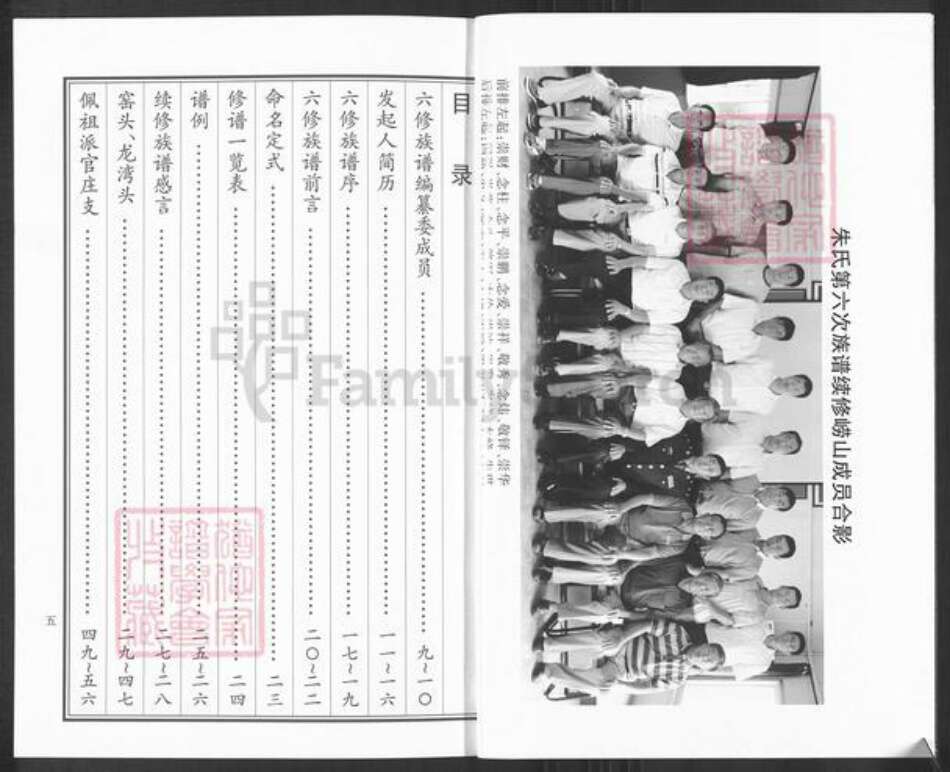 朱氏第六次族谱续修崂山成员合影
前排左起:崇财、念柱、念平、崇鹏、念爱、崇祥、敬秀、念
敬铎、崇华
后排左起:
目 录
六修族谱编纂委成员 九~一〇
发起人简历 一一~一六
六修族谱序 一七~一九
六修族谱前言 二〇~二二
命名定式 二三
修谱一览表 二四
谱例 二五~二六
续修族谱感言 二七~二八
窑头、龙湾头 二九~四七
佩祖派官庄支 四九~五六
五
FamilySearch